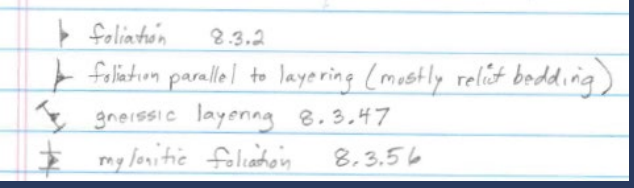 foliation 8.3.2
foliation parallel to layering (mostly relict bedding)
gneissic layering 8.3.47
mylonitic foliation 8.3.56